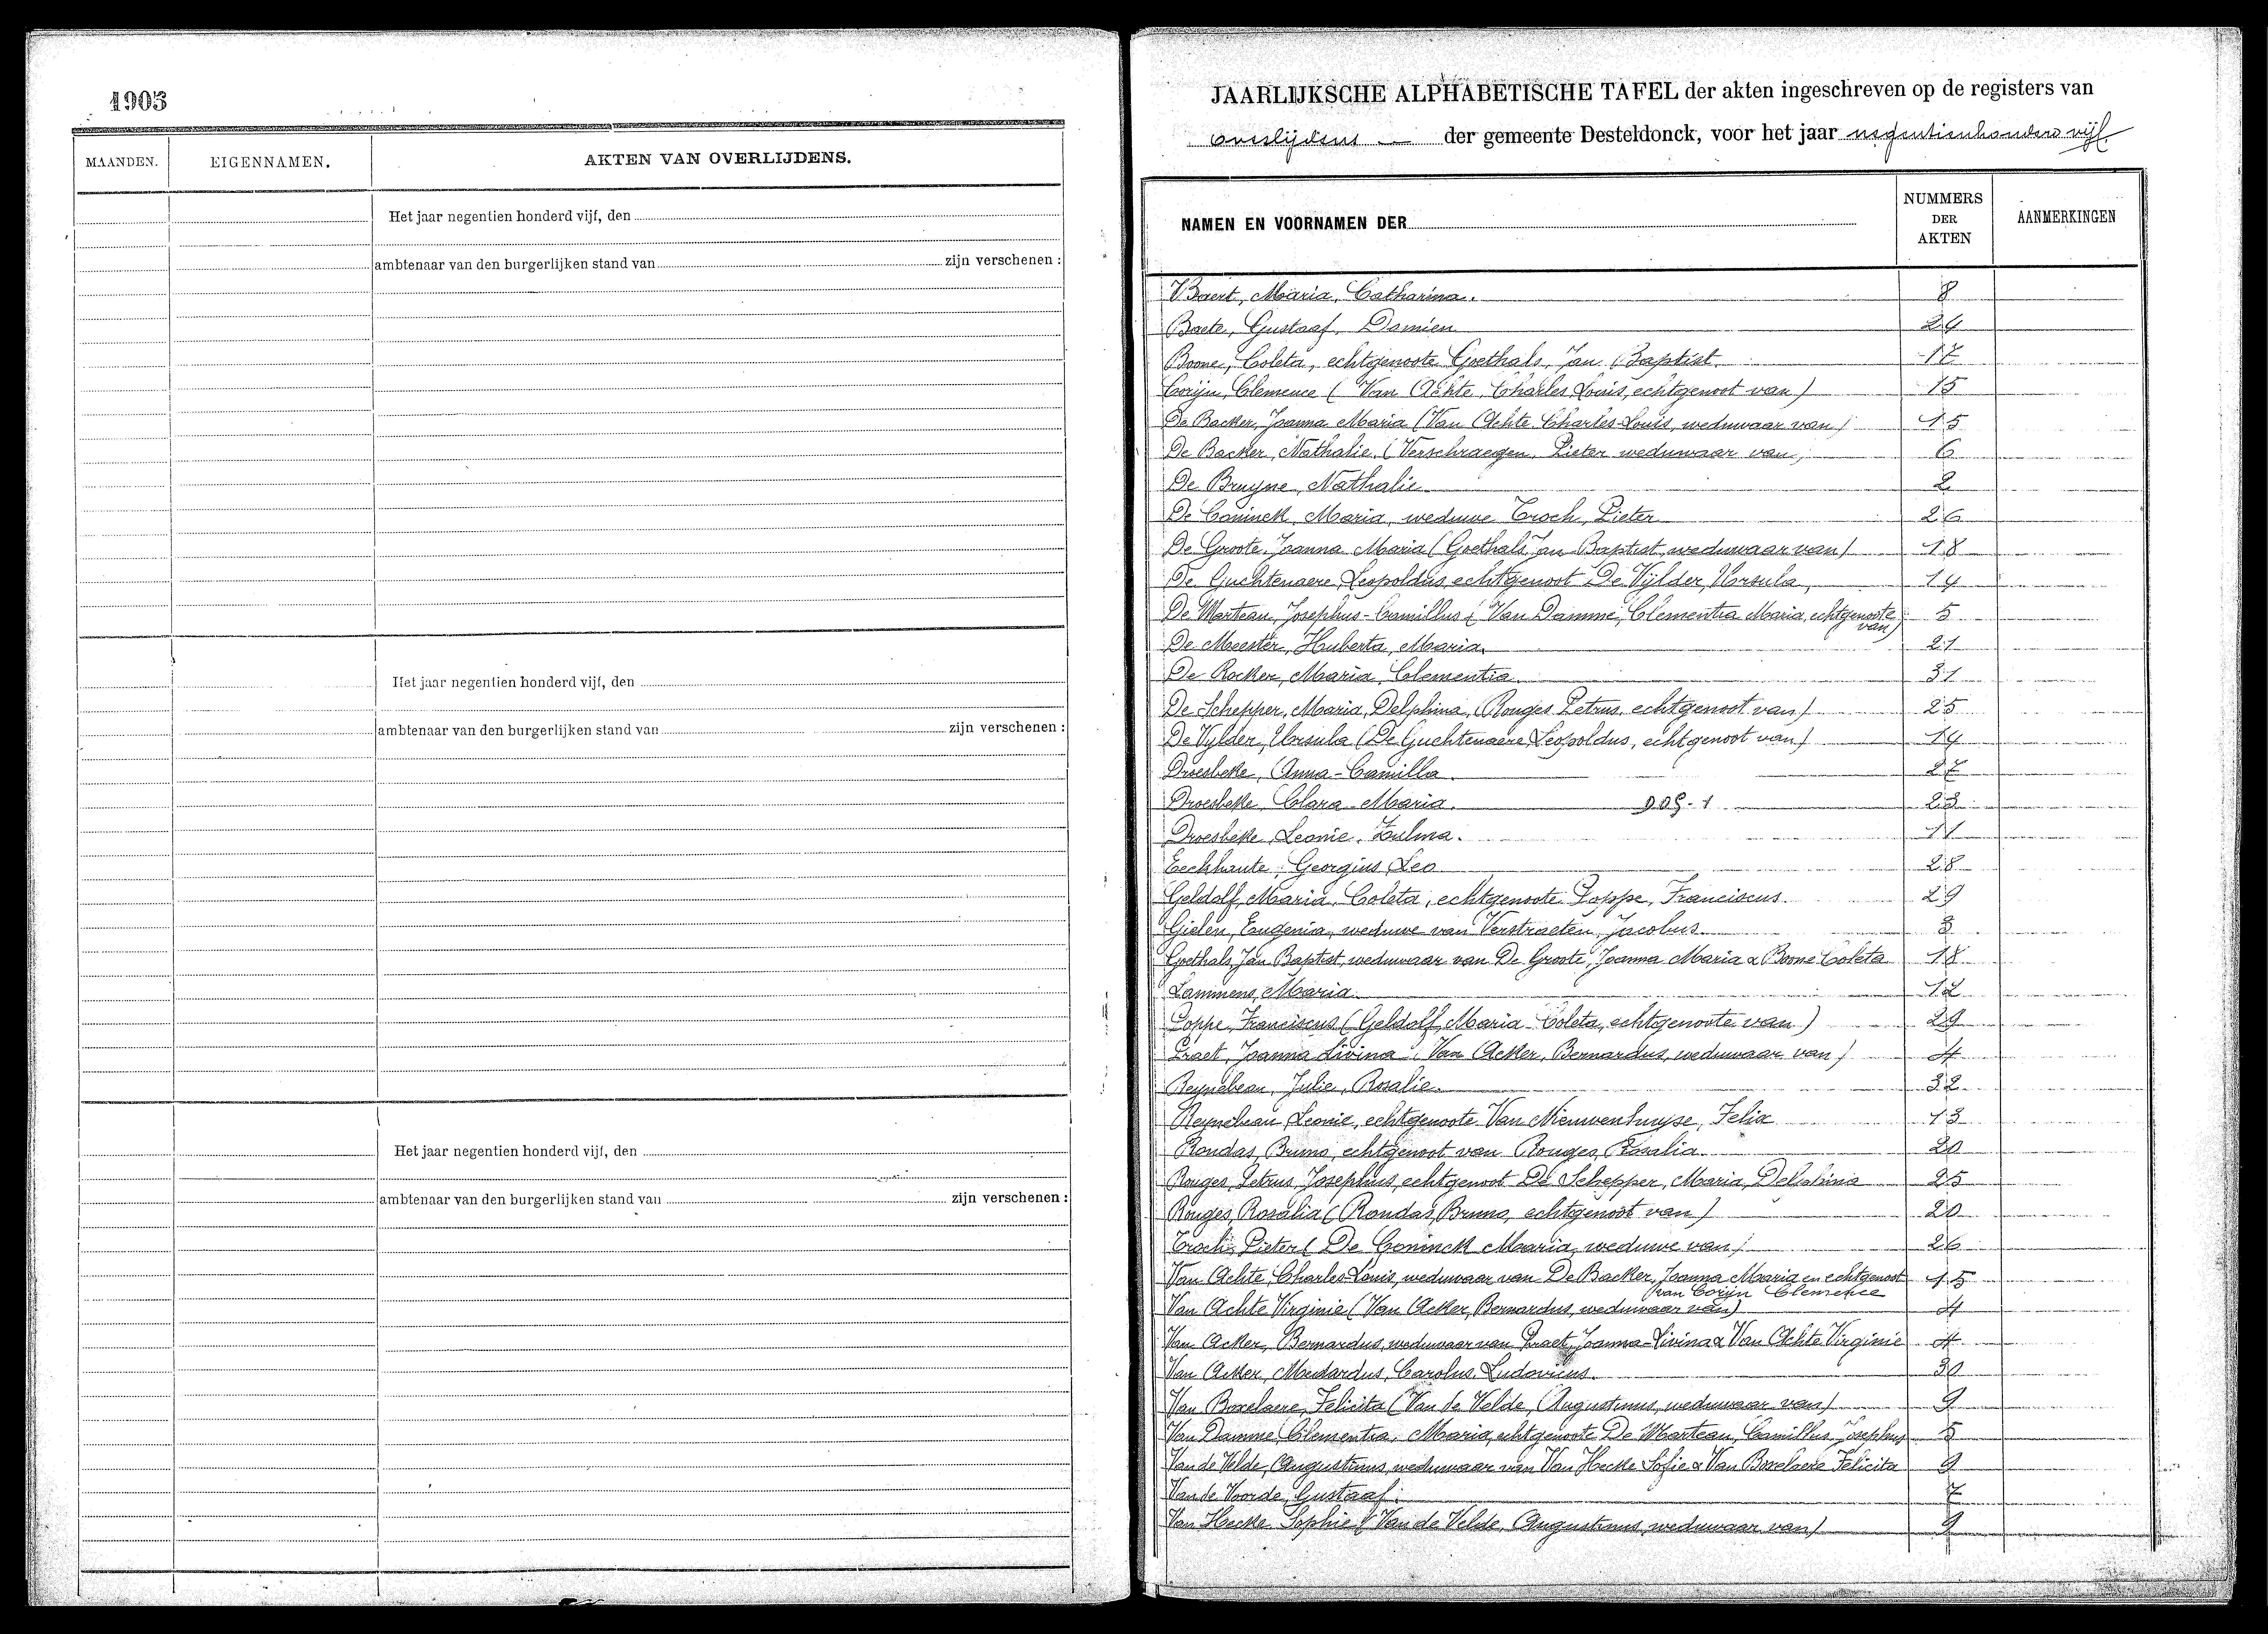 1905
MAANDEN. EIGENNAMEN. AKTEN VAN OVERLIJDENS.
Het jaar negentien honderd vijf, den
ambtenaar van den burgerlijken stand van zijn verschenen :
Het jaar negentien honderd vijf, den
ambtenaar van den burgerlijken stand van zijn verschenen :
Het jaar negentien honderd vijf, den
ambtenaar van den burgerlijken stand van zijn verschenen :
JAARLIJKSCHE ALPHABETISCHE TAFEL der akten ingeschreven op de registers van
overlijdens der gemeente Desteldonck, voor het jaar negentienhonderd vijf
NAMEN EN VOORNAMEN DER NUMMERS DER AKTEN AANMERKINGEN
Baert, Maria, Catharina. 8
Baete, Gustaaf, Damien 24
Boone, Coleta, echtgenoote Goethals, Jan Baptist. 17
Corijn, Clemence (Van Achte, Charles Louis, echtgenoot van) 15
De Backer, Joanna Maria (Van Achte Charles-Louis, weduwaar van) 15
De Backer, Nathalie, (Verschraegen, Pieter weduwaar van) 6
De Bruyne, Nathalie 2
De Coninck, Maria, weduwe Troch, Pieter 26
De Groote, Joanna Maria (Goethals Jan Baptist, weduwaar van) 18
De Guchtenaere, Leopoldus, echtgenoot De Vylder, Ursula, 14
De Marteau, Josephus-Camillus (Van Damme, Clementia Maria, echtgenoote van) 5
De Meester, Huberta, Maria. 21
De Rocker, Maria, Clementia 31
De Schepper, Maria, Delphina, (Rouges Petrus, echtgenoot van) 25
De Vylder, Ursula (De Guchtenaere, Leopoldus, echtgenoot van) 14
Droesbeke, Anna-Camilla. 27
Droesbeke, Clara-Maria. 905-1 23
Droesbeke, Leonie, Zulma. 11
Eeckhaute, Georgius, Leo 28
Geldolf, Maria, Coleta, echtgenoote Poppe, Franciscus. 29
Gielen, Eugenia, weduwe van Verstraeten, Jacobus 3
Goethals, Jan Baptist, weduwaar van De Groote, Joanna Maria & Boone Coleta 18
Lammens, Maria 12
Poppe, Franciscus (Geldolf, Maria-Coleta, echtgenoote van) 29
Praet, Joanna Livina (Van Acker, Bernardus, weduwaar van) 4
Reynebeau, Julie, Rosalie 32
Reynebeau, Leonie, echtgenoote Van Nieuwenhuyse, Felix 13
Rondas, Bruno, echtgenoot van Rouges, Rosalia 20
Rouges, Petrus, Josephus, echtgenoot De Schepper, Maria, Delphina 25
Rouges, Rosalia (Rondas, Bruno, echtgenoot van) 20
Troch, Pieter (De Coninck Maria, weduwe van) 26
Van Achte, Charles-Louis, weduwaar van De Backer, Joanna Maria en echtgenoot 15
van Corijn Clemence
Van Achte Virginie (Van Acker, Bernardus, weduwaar van) 4
Van Acker, Bernardus, weduwaar van Praet, Joanna-Livina & Van Achte Virginie 4
Van Acker, Medardus, Carolus, Ludovicus. 30
Van Boxelaere, Felicita (Van de Velde, Augustinus, weduwaar van) 9
Van Damme, Clementia, Maria, echtgenoote De Marteau, Camillus, Josephus 5
Van de Velde, Augustinus, weduwaar van Van Hecke Sofie & Van Boxelaere Felicita 9
Van de Voorde, Gustaaf. 7
Van Hecke Sophie (Van de Velde, Augustinus, weduwaar van) 9